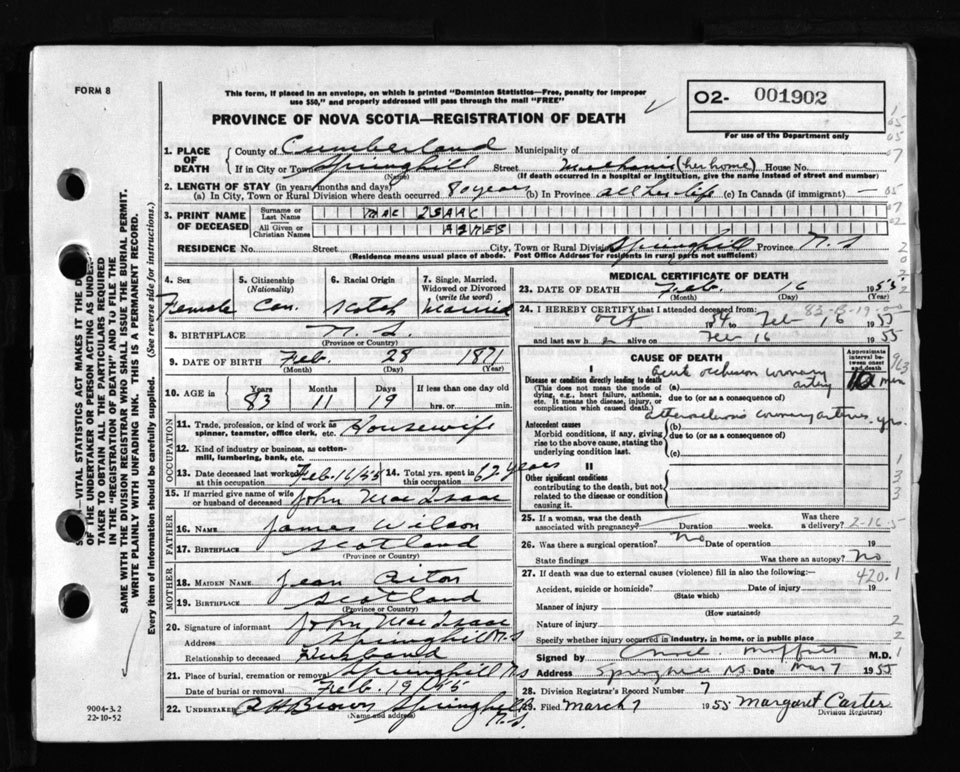 FORM 8
This form, if placed in an envelope, on which is printed "Dominion Statistics—Free, penalty for improper
use $50," and properly addressed will pass through the mail "FREE"
O2- 001902
For use of the Department only
PROVINCE OF NOVA SCOTIA—REGISTRATION OF DEATH
1. PLACE OF DEATH { County of Cumberland Municipality of
If in City or Town Springhill (Name) Street (her home) House No.
(If death occurred in a hospital or institution, give the name instead of street and number)
2. LENGTH OF STAY (in years, months and days)
(a) In City, Town or Rural Division where death occurred 80 years (b) In Province all her life (c) In Canada (if immigrant) —
3. PRINT NAME OF DECEASED { Surname or Last Name MAC ISAAC
All Given or Christian Names AGNES
RESIDENCE No. Street City, Town or Rural Division Springhill Province N.S
(Residence means usual place of abode. Post Office Address for residents in rural parts not sufficient)
4. Sex Female
5. Citizenship (Nationality) Can.
6. Racial Origin Scotch
7. Single, Married, Widowed or Divorced (write the word) Married
8. BIRTHPLACE N.S. (Province or Country)
9. DATE OF BIRTH Feb. 28 1871
(Month) (Day) (Year)
10. AGE in { Years 83 Months 11 Days 19 If less than one day hrs. or min.
OCCUPATION
11. Trade, profession, or kind of work as spinner, teamster, office clerk, etc. Housewife
12. Kind of industry or business, as cotton-mill, lumbering, bank, etc.
13. Date deceased last worked at this occupation Feb. 16/55 14. Total yrs. spent in this occupation 62 years
15. If married give name of wife or husband of deceased John MacIsaac
FATHER
16. NAME James Wilson
17. BIRTHPLACE Scotland
(Province or Country)
MOTHER
18. MAIDEN NAME Jean Aiton
19. BIRTHPLACE Scotland
(Province or Country)
20. Signature of informant John MacIsaac
Address Springhill N.S
Relationship to deceased Husband
21. Place of burial, cremation or removal Springhill N.S
Date of burial or removal Feb. 19/55
22. UNDERTAKER A H Brown Springhill N.S.
(Name and address)
MEDICAL CERTIFICATE OF DEATH
23. DATE OF DEATH Feb. 16 1955
(Month) (Day) (Year)
24. I HEREBY CERTIFY, that I attended deceased from: 83-B-19-
Oct 1954 to Feb 16 1955
and last saw h alive on Feb 16 1955
CAUSE OF DEATH
Approximate interval between onset and death
I
Disease or condition directly leading to death (This does not mean the mode of dying, e.g., heart failure, asthenia, etc. It means the disease, injury, or complication which caused death.)
(a) Acute occlusion coronary artery 10 min
due to (or as a consequence of)
Antecedent causes
Morbid conditions, if any, giving rise to the above cause, stating the underlying condition last.
(b) atherosclerosis coronary arteries yrs.
due to (or as a consequence of)
(c)
II
Other significant conditions contributing to the death, but not related to the disease or condition causing it.
25. If a woman, was the death associated with pregnancy? Duration weeks. Was there a delivery? 2-16-5
26. Was there a surgical operation? No Date of operation 19
State findings Was there an autopsy? No
27. If death was due to external causes (violence) fill in also the following: 420.1
Accident, suicide or homicide? Date of injury 19
(State which)
Manner of injury
(How sustained)
Nature of injury
Specify whether injury occurred in industry, in home, or in public place
Signed by Moffatt M.D.
Address Springhill N.S. Date Mar 7 1955
28. Division Registrar's Record Number 7
29. Filed March 7 1955 Margaret Carter
Division Registrar)
VITAL STATISTICS ACT MAKES IT THE
OF THE UNDERTAKER OR PERSON ACTING AS UNDER
TAKER TO OBTAIN ALL THE PARTICULARS REQUIRED
IN THE "REGISTRATION OF DEATH" AND TO FILE THE
SAME WITH THE DIVISION REGISTRAR WHO SHALL ISSUE THE BURIAL PERMIT.
WRITE PLAINLY WITH UNFADING INK. THIS IS A PERMANENT RECORD.
Every item of information should be carefully supplied. (See reverse side for instructions.)
9004-3.2
22-10-52